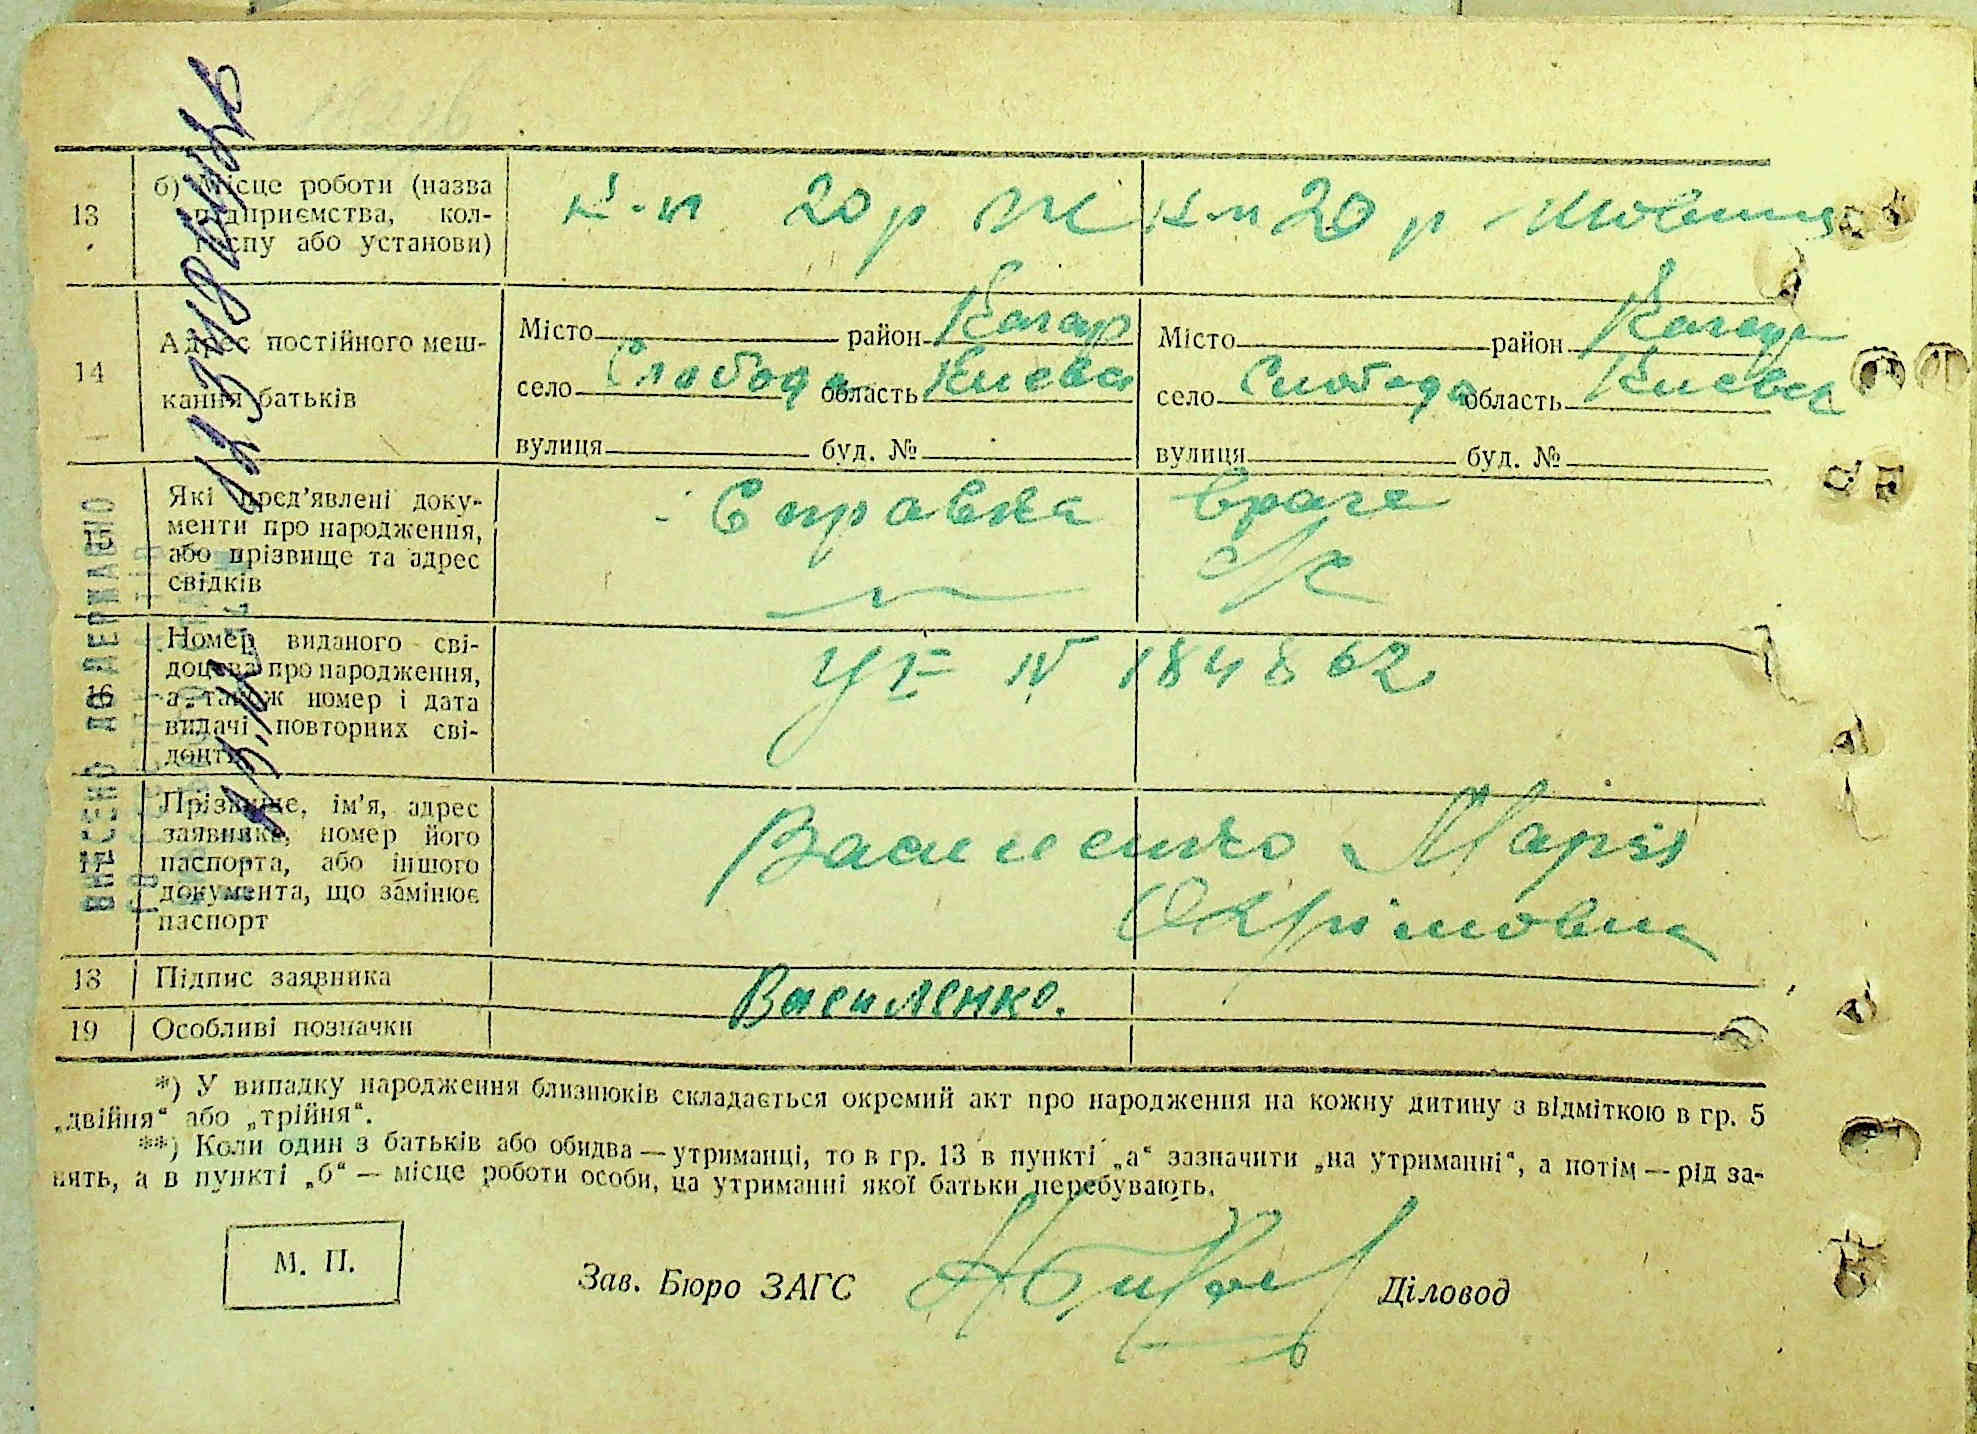 13
б) Місце роботи (назва
підприємства, кол-
госпу або установи)
к-п 20 р Ж
к-п 20 р - Жовтня
14
Адрес постійного меш-
кання батьків
Місто район Кагар
село Слобода область Києвс
вулиця буд. №
Місто район Кагар
село Слобода область Києвс
вулиця буд. №
15
Які пред’явлені доку-
менти про народження,
або прізвище та адрес
свідків
Справка врача
с/с
16
Номер виданого сві-
доцтва про народження,
а також номер і дата
видачі повторних сві-
доцтв
IV 184862
17
Прізвище, ім’я, адрес
заявника, номер його
паспорта, або іншого
документа, що замінює
паспорт
Василенко Марія
Охрімовна
18
Підпис заявника
Василенко.
19
Особливі позначки
ВНЕСЕНО ДО ДЕРЖАВНО
*) У випадку народження близнюків складається окремий акт про народження на кожну дитину з відміткою в гр. 5
„двійня“ або „трійня“.
**) Коли один з батьків або обидва — утриманці, то в гр. 13 в пункті „а“ зазначити „на утриманні“, а потім — рід за-
нять, а в пункті „б“ — місце роботи особи, на утриманні якої батьки перебувають.
М. П.
Зав. Бюро ЗАГС
Діловод